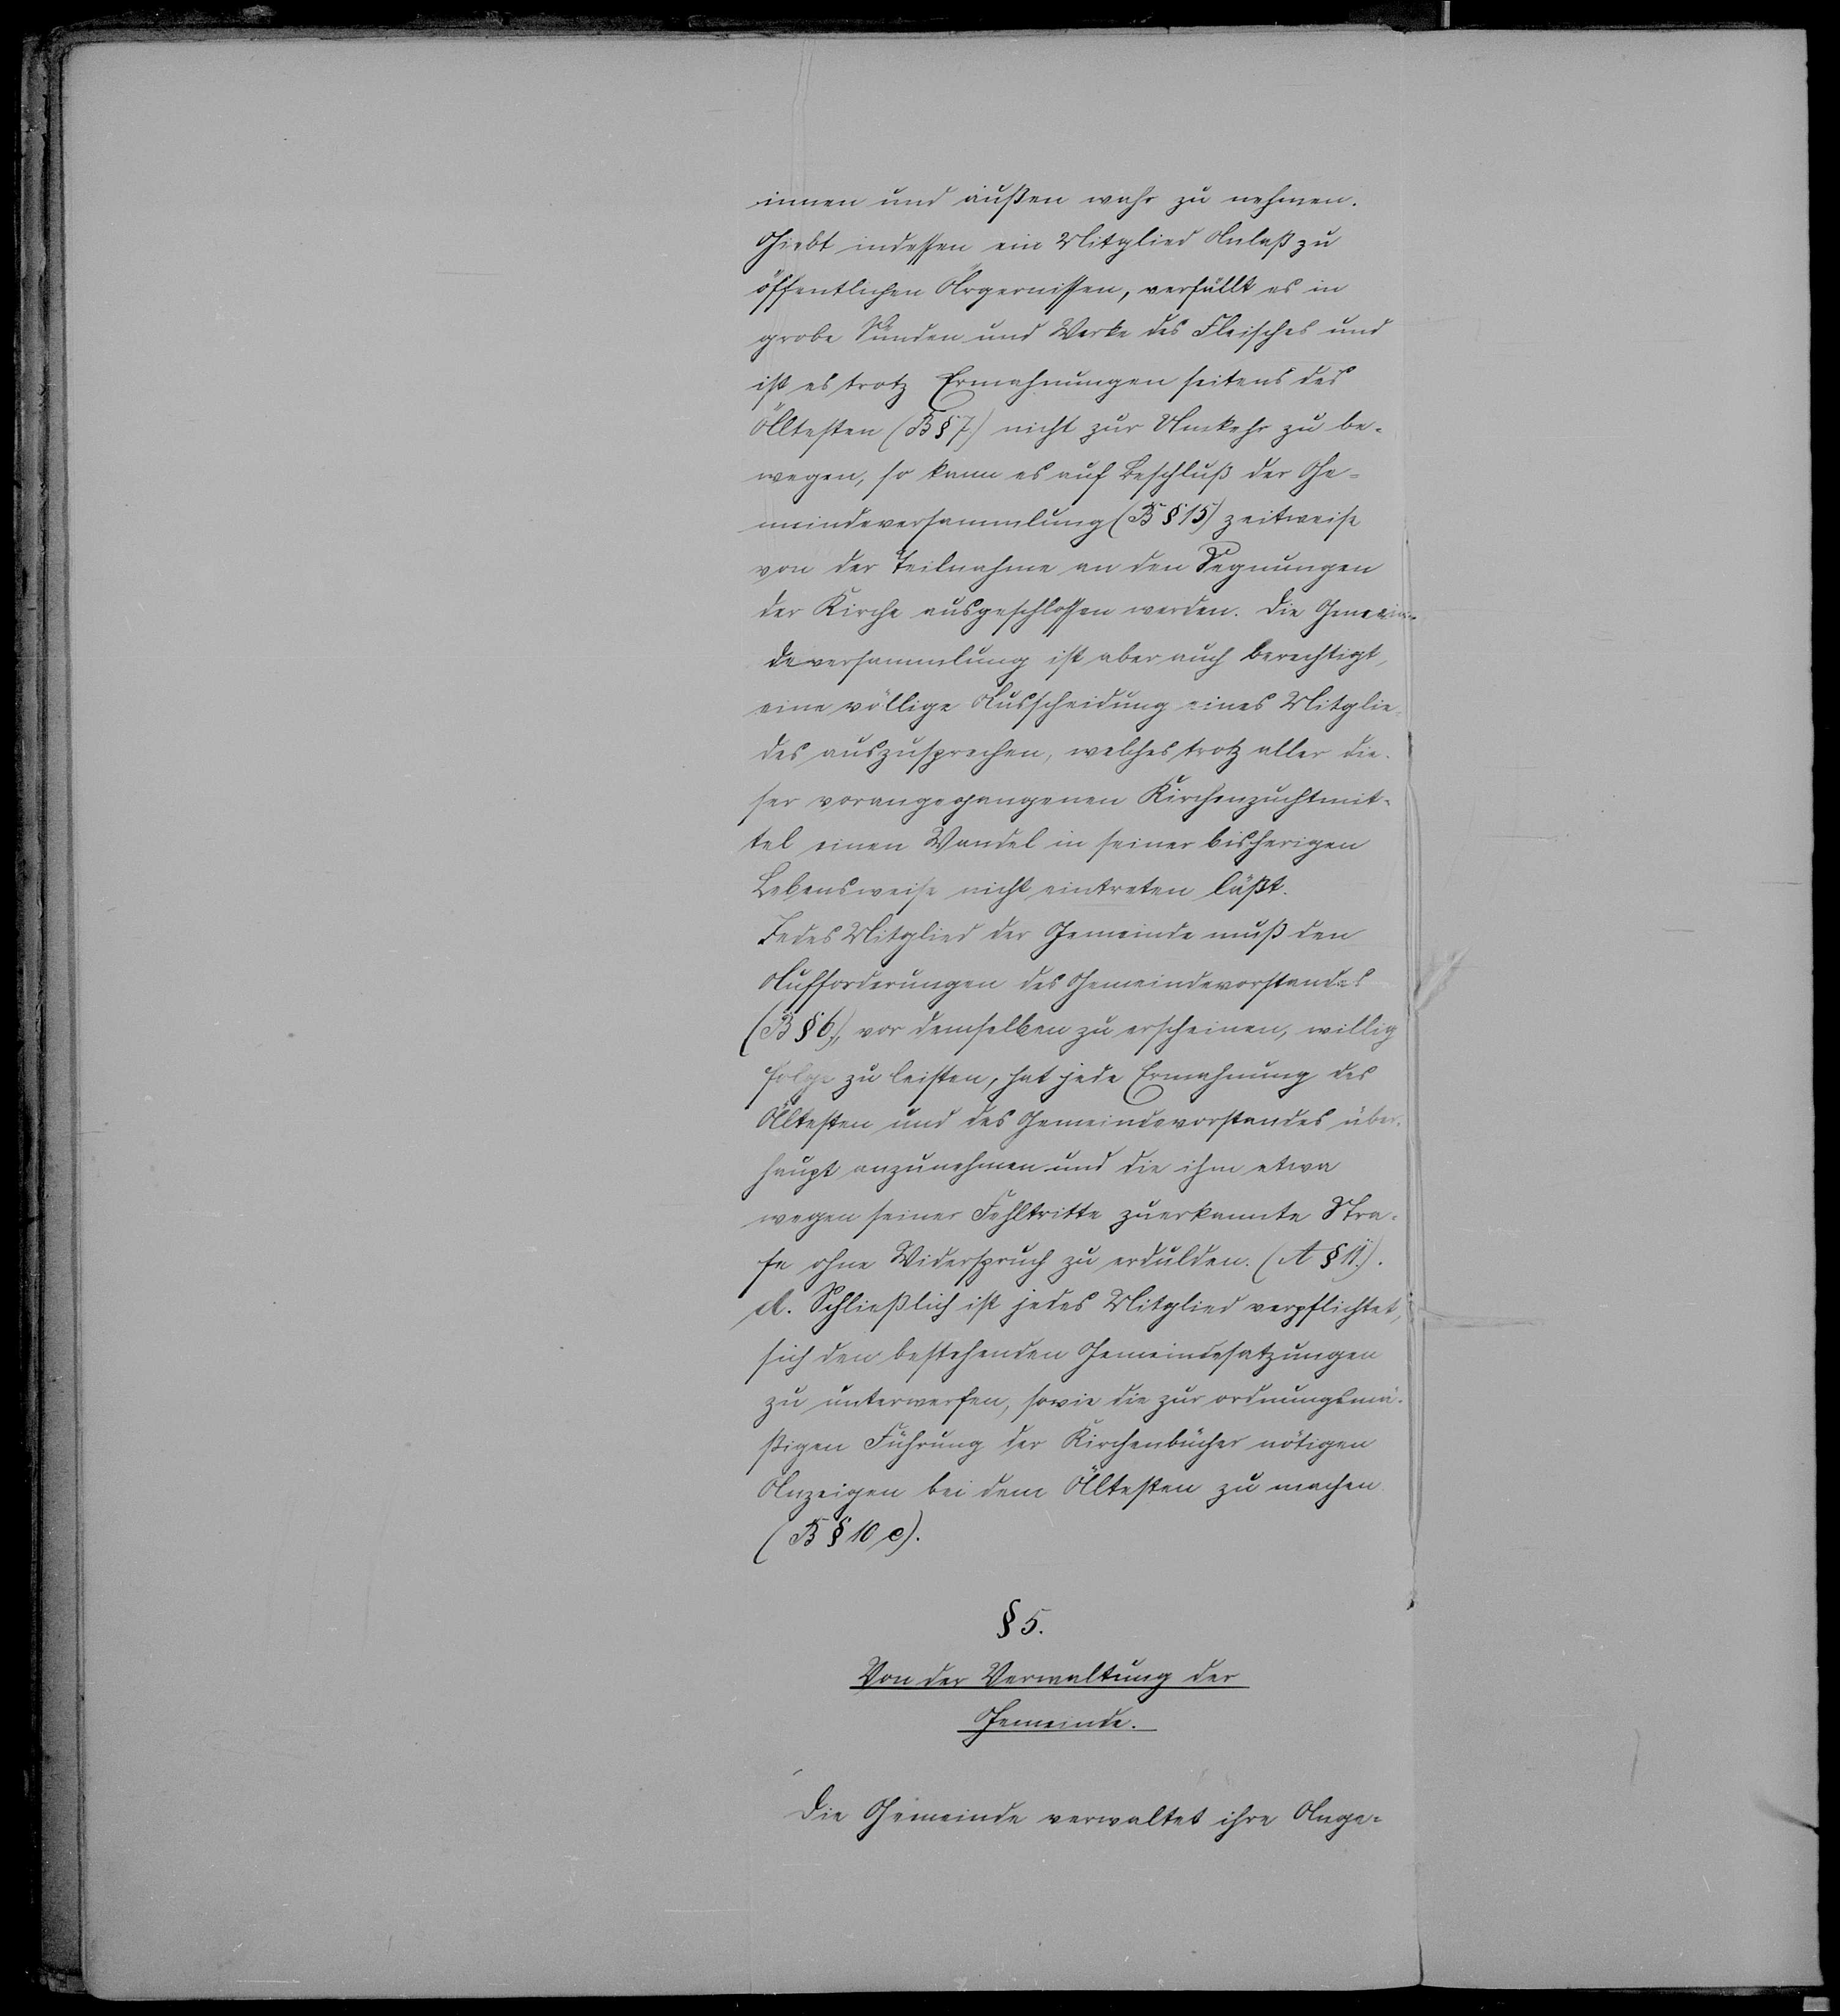 innen und außen wahr zu nehmen.
Giebt indessen ein Mitglied Anlaß zu
öffentlichen Ärgernissen, verfällt es in
grobe Sünden und Werke des Fleisches und
ist es trotz Ermahnungen seitens des
Ältesten (B § 7.) nicht zur Umkehr zu be-
wegen, so kann es auf Beschluß der Ge-
meindeversammlung (B § 15) zeitweise
von der Teilnahme an den Segnungen
der Kirche ausgeschlossen werden. Die Gemein-
deversammlung ist aber auch berechtigt,
eine völlige Ausscheidung eines Mitglie-
des auszusprechen, welches trotz aller die-
ser vorangegangenen Kirchenzuchtmit-
tel einen Wandel in seiner bisherigen
Lebensweise nicht eintreten läßt.
Jedes Mitglied der Gemeinde muß den
Aufforderungen des Gemeindevorstandes
(B § 6), vor demselben zu erscheinen, willig
folge zu leisten, hat jede Ermahnung des
Ältesten und des Gemeindevorstandes über-
haupt anzunehmen und die ihm etwa
wegen seiner Fehltritte zuerkannte Stra-
fe ohne Widerspruch zu erdulden. (A § 11.).
d. Schließlich ist jedes Mitglied verpflichtet,
sich den bestehenden Gemeindesatzungen
zu unterwerfen, sowie die zur ordnungsmä-
ßigen Führung der Kirchenbücher nötigen
Anzeigen bei dem Ältesten zu machen
(B § 10 e).
§ 5.
Von der Verwaltung der
Gemeinde.
Die Gemeinde verwaltet ihre Ange-